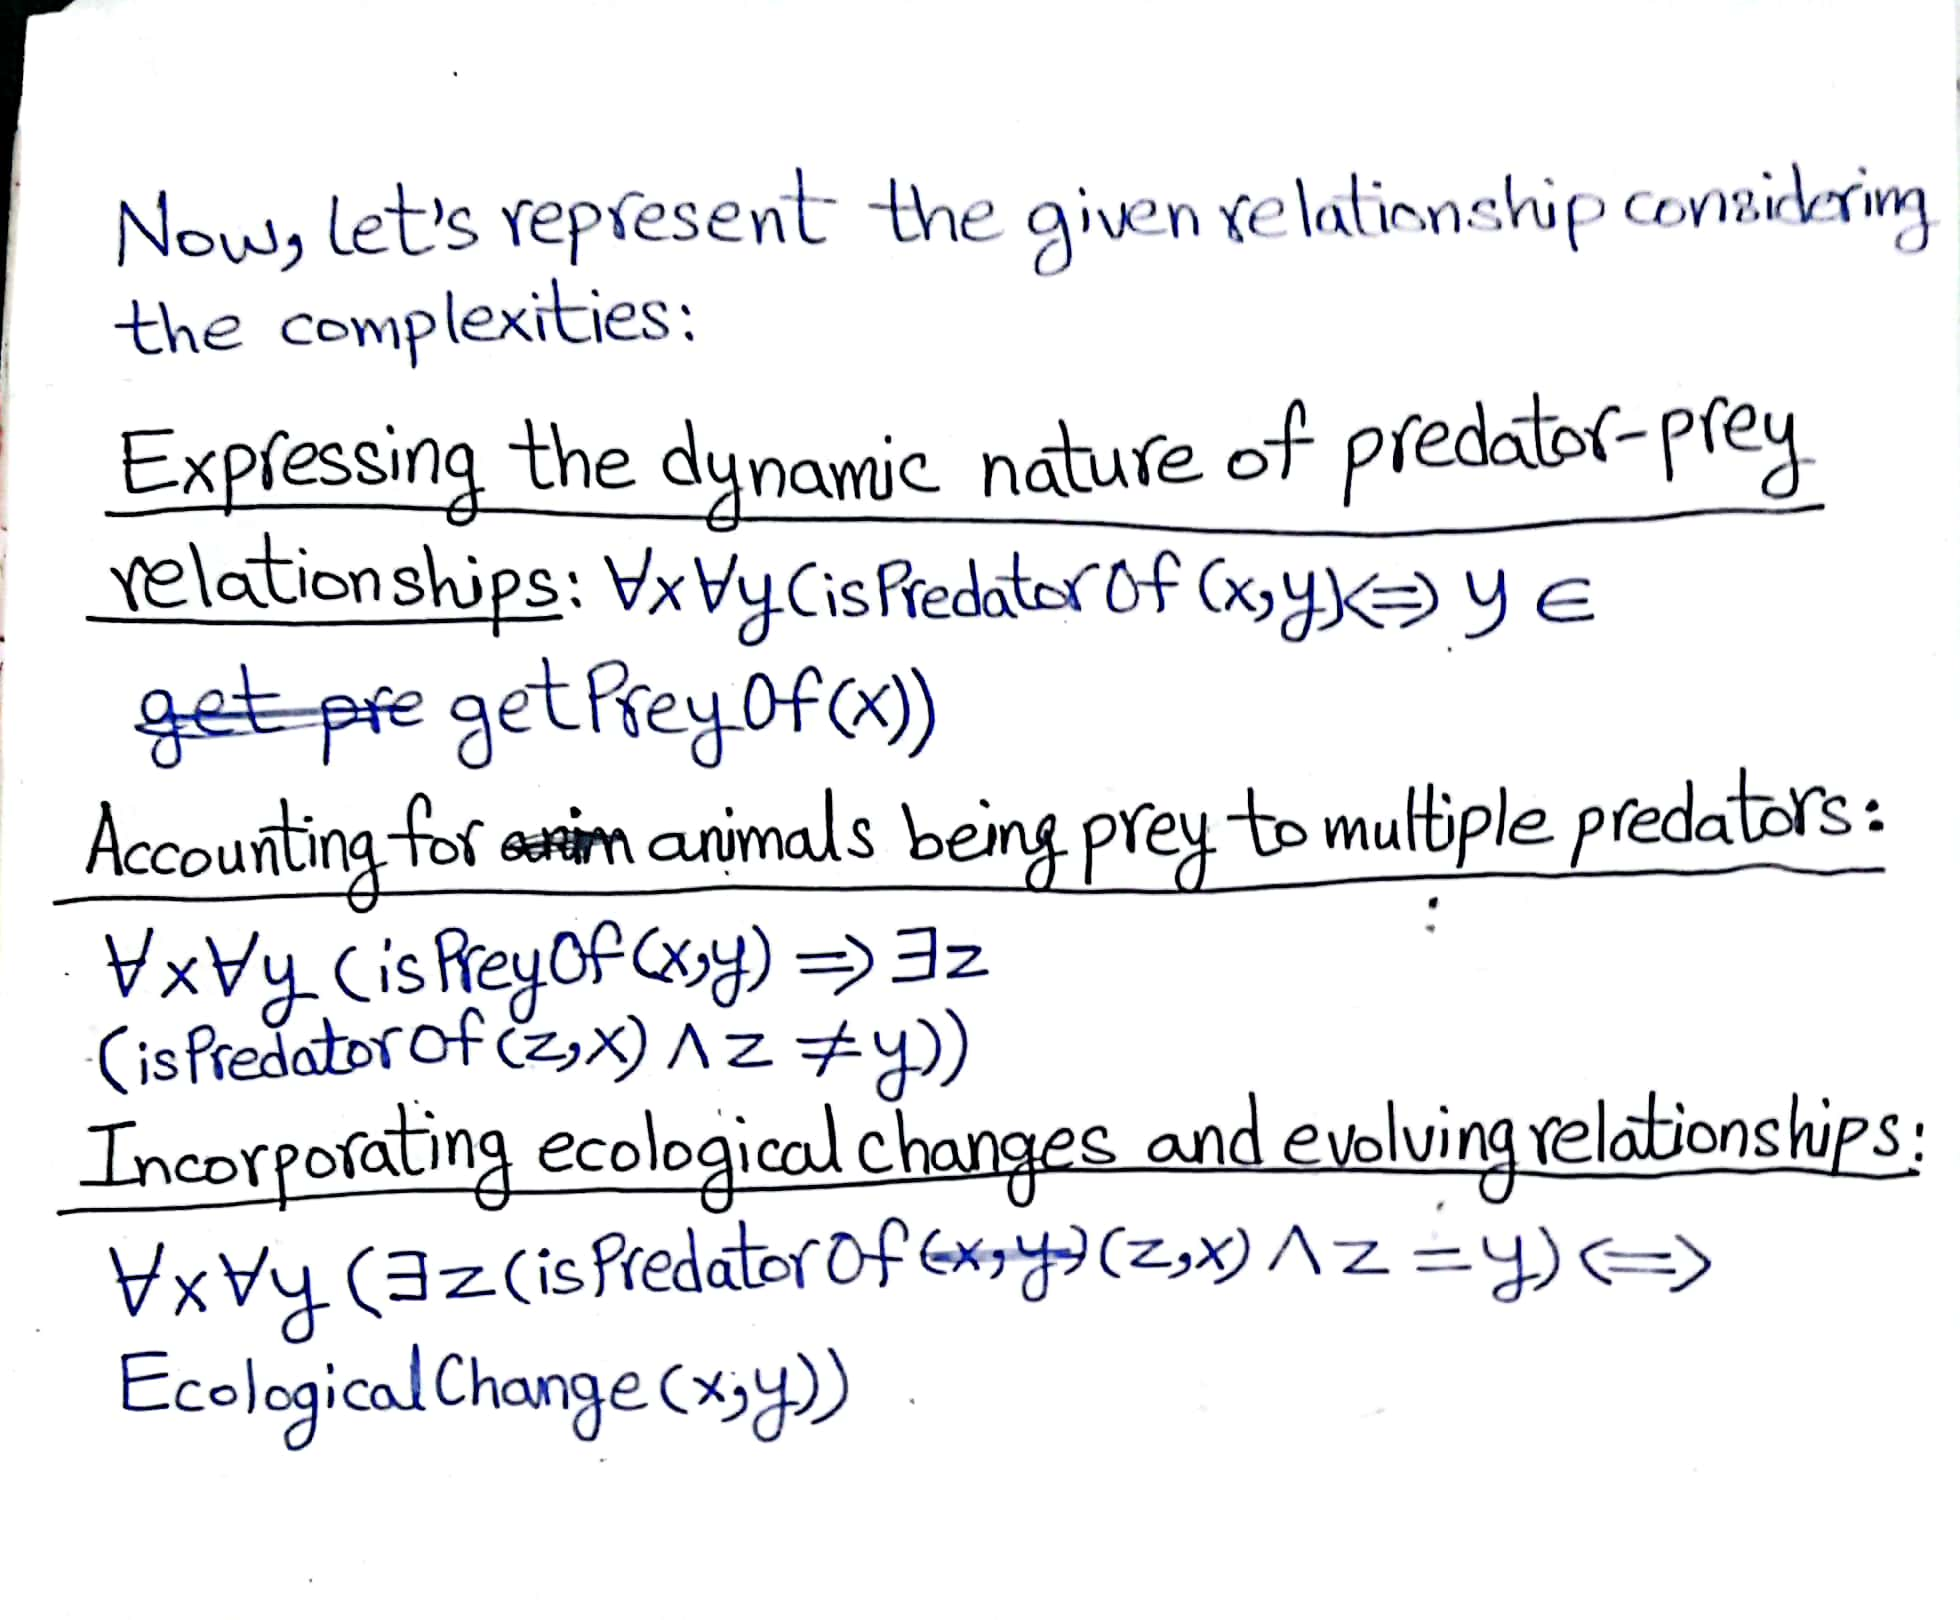 Now, let's represent the given relationship considering
the complexities:
Expressing the dynamic nature of predator-prey
relationships: ∀x∀y(isPredatorOf(x,y)<=> y ∈
get pre getPreyOf(x))
Accounting for anim animals being prey to multiple predators:
∀x∀y (isPreyOf(x,y) => ∃z
(isPredatorOf(z,x) ∧ z ≠ y))
Incorporating ecological changes and evolving relationships:
∀x∀y (∃z(isPredatorOf (x,y) (z,x) ∧ z = y) <=>
EcologicalChange(x,y))